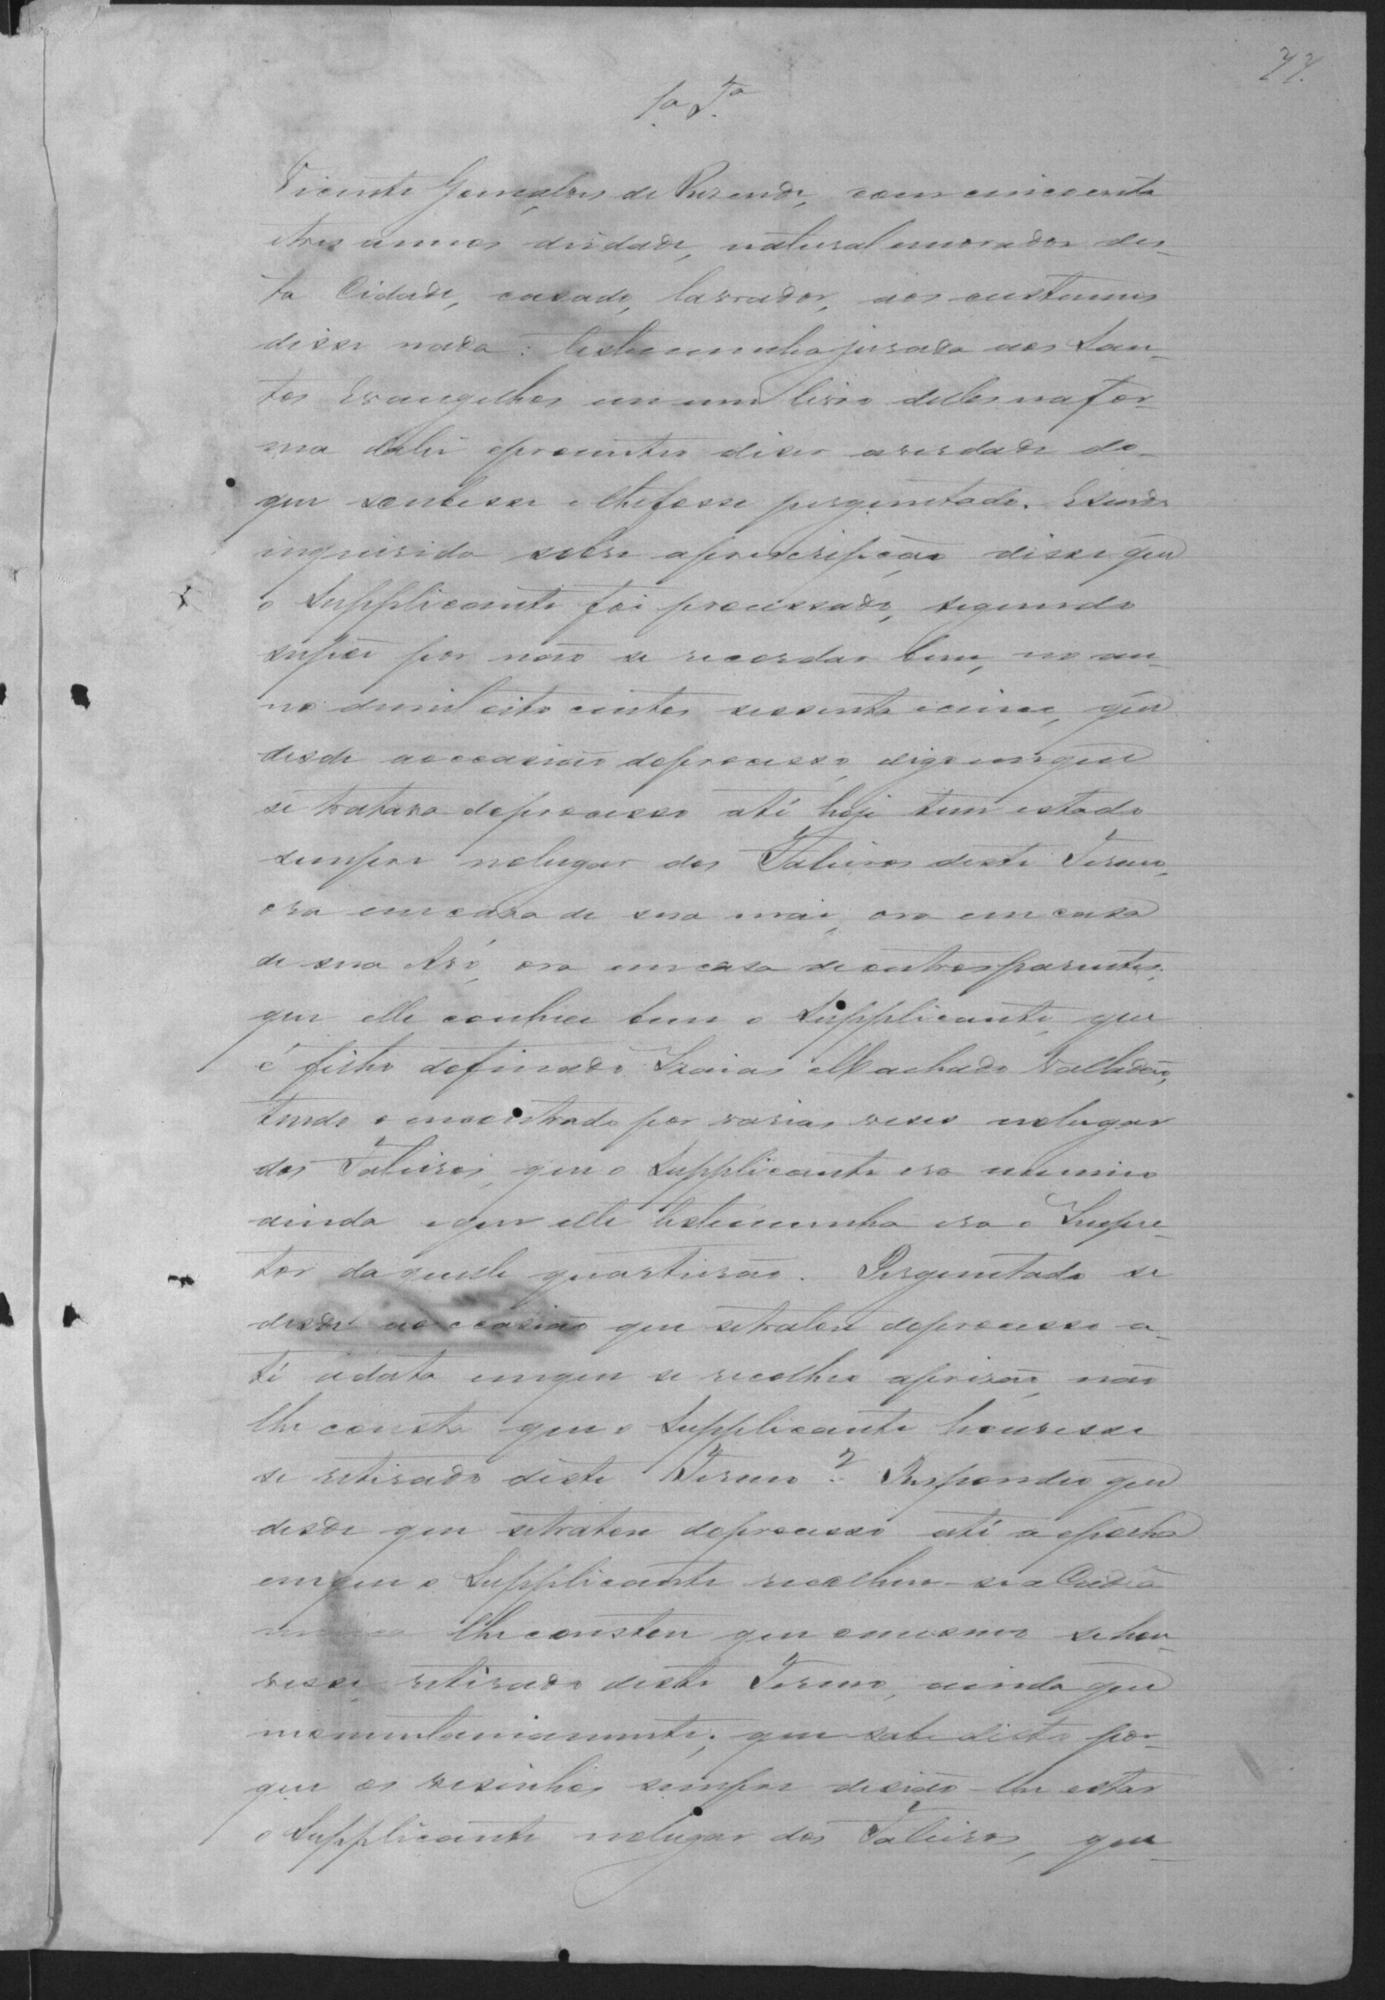 77.
1.ª T.ª
Vicente Gonçalves de Resende, com cincoenta
e tres annos didade, natural emorador des-
ta Cidade, casado, lavrador, aos custumes
disse nada: testemunha jurada aos San-
tos Evangelhos em um livro delles na for-
ma da lei eprometteo diser averdade do-
que soubesse e lhefosse perguntado. Esendo
inquirido sobre aprescripção disse que
o Supplicante foi processado, segundo
supõe por não se recordar bem, no an-
no demil oito centos sessenta ecinco, que
desde aoccasião deprocesso, digo emque
se tratava deprocesso até hoje tem estado
sempre nolugar dos Taleiros deste Termo,
ora em casa de sua mai, ora em casa
de sua Avó, ora emcasa deoutros parentes;
que elle conhece bem o Supplicante, que
é filho definado Izaias Machado Valladão,
tendo o encontrado por varias veses nolugar
dos Taleiros, que o Supplicante era menino
ainda eque elle testemunha era o Inspec-
tor daquelle quarteirão. Perguntado se
desde aoccasião que setratou deprocesso a-
té adata emque se recolheo aprisão, não
lhe consta que o Supplicante houvesse
se retirado deste Termo? Respondeo que
desde que setratou deprocesso até a epocha
emque o Supplicante recolheu-se a Cadêa
nunca lhe constou que omesmo sehou-
vesse retirado deste Termo, ainda que
momentaniamente; que sabe disto por-
que os vesinhos sempre disião-lhe estar
o Supplicante nolugar dos Taleiros, que-